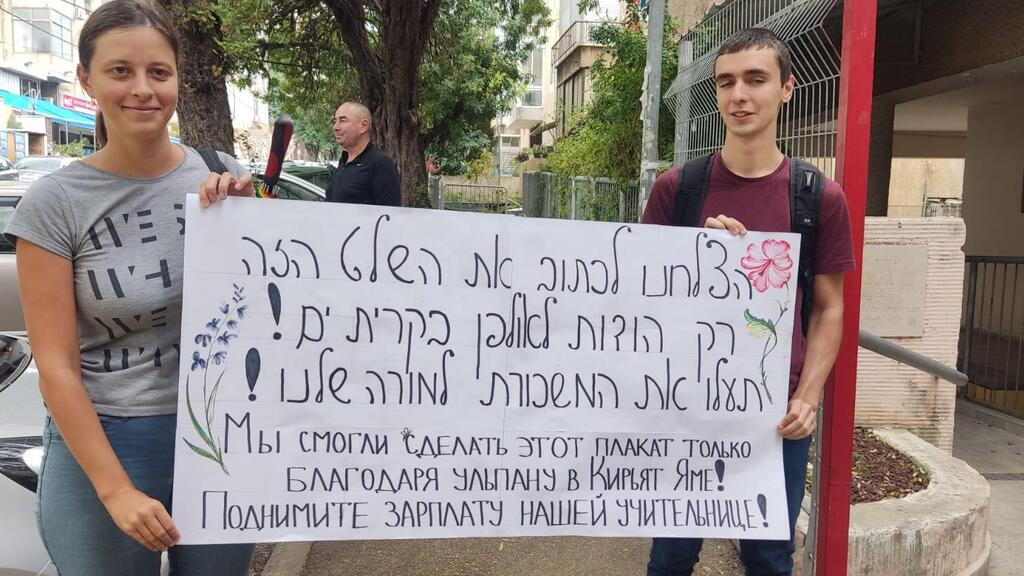 הצלחנו לכתוב את השלט הזה
רק הודות לאולפן בקרית ים!
תעלו את המשכורת למורה שלנו!
Мы смогли сделать этот плакат только
благодаря ульпану в Кирьят Яме!
Поднимите зарплату нашей учительнице!